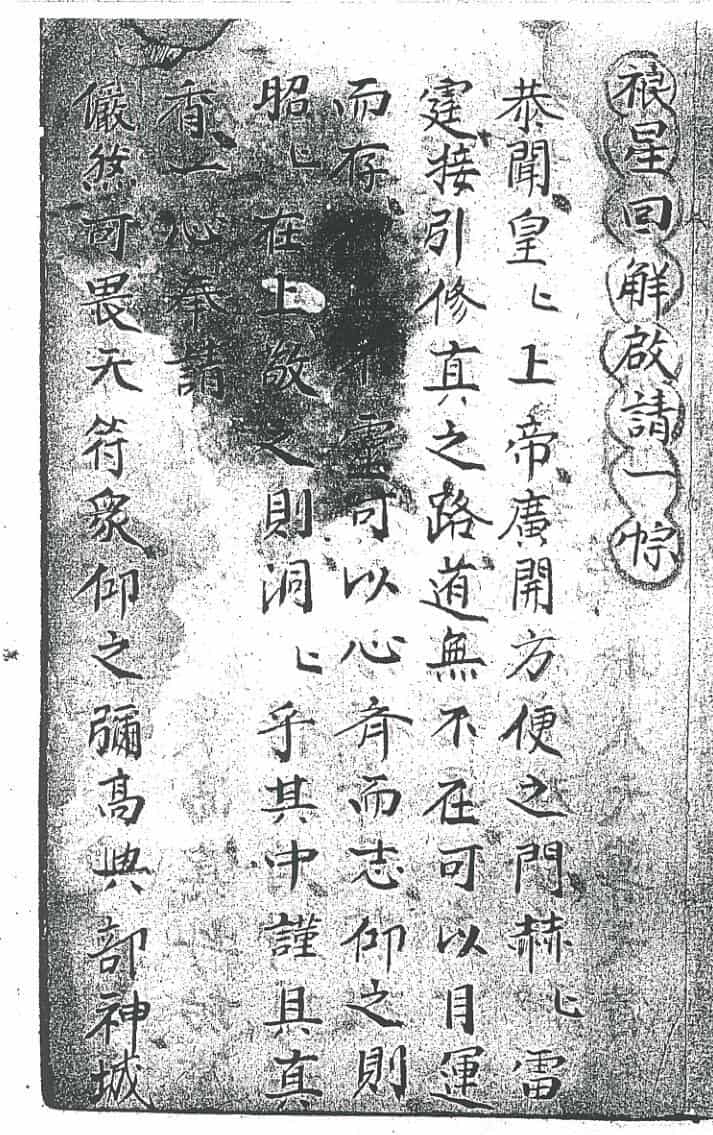 禳星回解啟請一宗
恭聞皇〻上帝廣開方便之門赫〻雷
霆接引修真之路道無不在可以目運
而存不靈可以心齊而志仰之則
昭〻在上敬之則洞〻乎其中謹具真
香一心奉請
儼然可畏天符眾仰之彌高典部神城